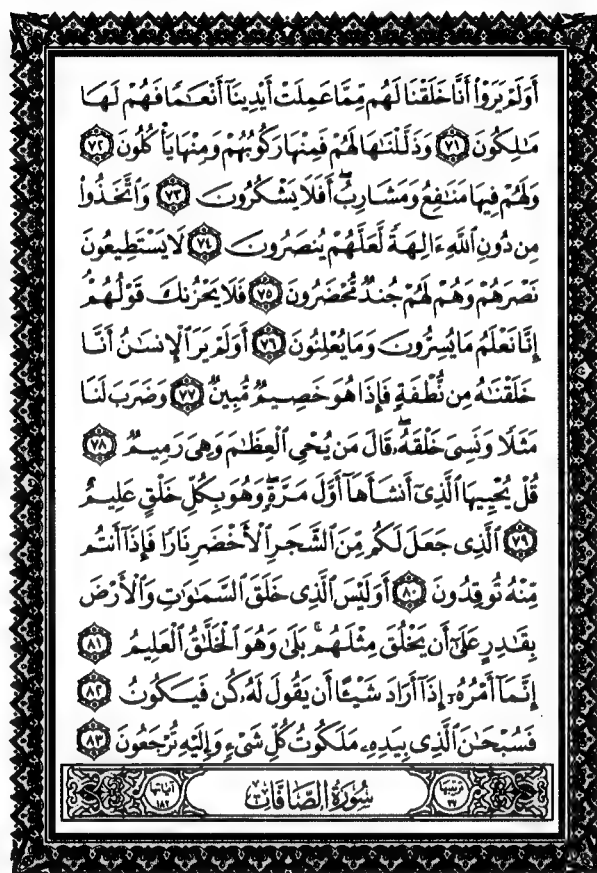 أَوَلَمْ يَرَوْا۟ أَنَّا خَلَقْنَا لَهُم مِّمَّا عَمِلَتْ أَيْدِينَآ أَنْعَـٰمًا فَهُمْ لَهَا
مَـٰلِكُونَ ﴿٧١﴾ وَذَلَّلْنَـٰهَا لَهُمْ فَمِنْهَا رَكُوبُهُمْ وَمِنْهَا يَأْكُلُونَ ﴿٧٢﴾
وَلَهُمْ فِيهَا مَنَـٰفِعُ وَمَشَارِبُ ۖ أَفَلَا يَشْكُرُونَ ﴿٧٣﴾ وَٱتَّخَذُوا۟
مِن دُونِ ٱللَّهِ ءَالِهَةً لَّعَلَّهُمْ يُنصَرُونَ ﴿٧٤﴾ لَا يَسْتَطِيعُونَ
نَصْرَهُمْ وَهُمْ لَهُمْ جُندٌ مُّحْضَرُونَ ﴿٧٥﴾ فَلَا يَحْزُنكَ قَوْلُهُمْ ۘ
إِنَّا نَعْلَمُ مَا يُسِرُّونَ وَمَا يُعْلِنُونَ ﴿٧٦﴾ أَوَلَمْ يَرَ ٱلْإِنسَـٰنُ أَنَّا
خَلَقْنَـٰهُ مِن نُّطْفَةٍ فَإِذَا هُوَ خَصِيمٌ مُّبِينٌ ﴿٧٧﴾ وَضَرَبَ لَنَا
مَثَلًا وَنَسِىَ خَلْقَهُۥ ۖ قَالَ مَن يُحْىِ ٱلْعِظَـٰمَ وَهِىَ رَمِيمٌ ﴿٧٨﴾
قُلْ يُحْيِيهَا ٱلَّذِىٓ أَنشَأَهَآ أَوَّلَ مَرَّةٍ ۖ وَهُوَ بِكُلِّ خَلْقٍ عَلِيمٌ
﴿٧٩﴾ ٱلَّذِى جَعَلَ لَكُم مِّنَ ٱلشَّجَرِ ٱلْأَخْضَرِ نَارًا فَإِذَآ أَنتُم
مِّنْهُ تُوقِدُونَ ﴿٨٠﴾ أَوَلَيْسَ ٱلَّذِى خَلَقَ ٱلسَّمَـٰوَٰتِ وَٱلْأَرْضَ
بِقَـٰدِرٍ عَلَىٰٓ أَن يَخْلُقَ مِثْلَهُم ۚ بَلَىٰ وَهُوَ ٱلْخَلَّـٰقُ ٱلْعَلِيمُ ﴿٨١﴾
إِنَّمَآ أَمْرُهُۥٓ إِذَآ أَرَادَ شَيْـًٔا أَن يَقُولَ لَهُۥ كُن فَيَكُونُ ﴿٨٢﴾
فَسُبْحَـٰنَ ٱلَّذِى بِيَدِهِۦ مَلَكُوتُ كُلِّ شَىْءٍ وَإِلَيْهِ تُرْجَعُونَ ﴿٨٣﴾
ترتيبها ٣٧ سُورَةُ الصَّافَّات آياتها ١٨٢